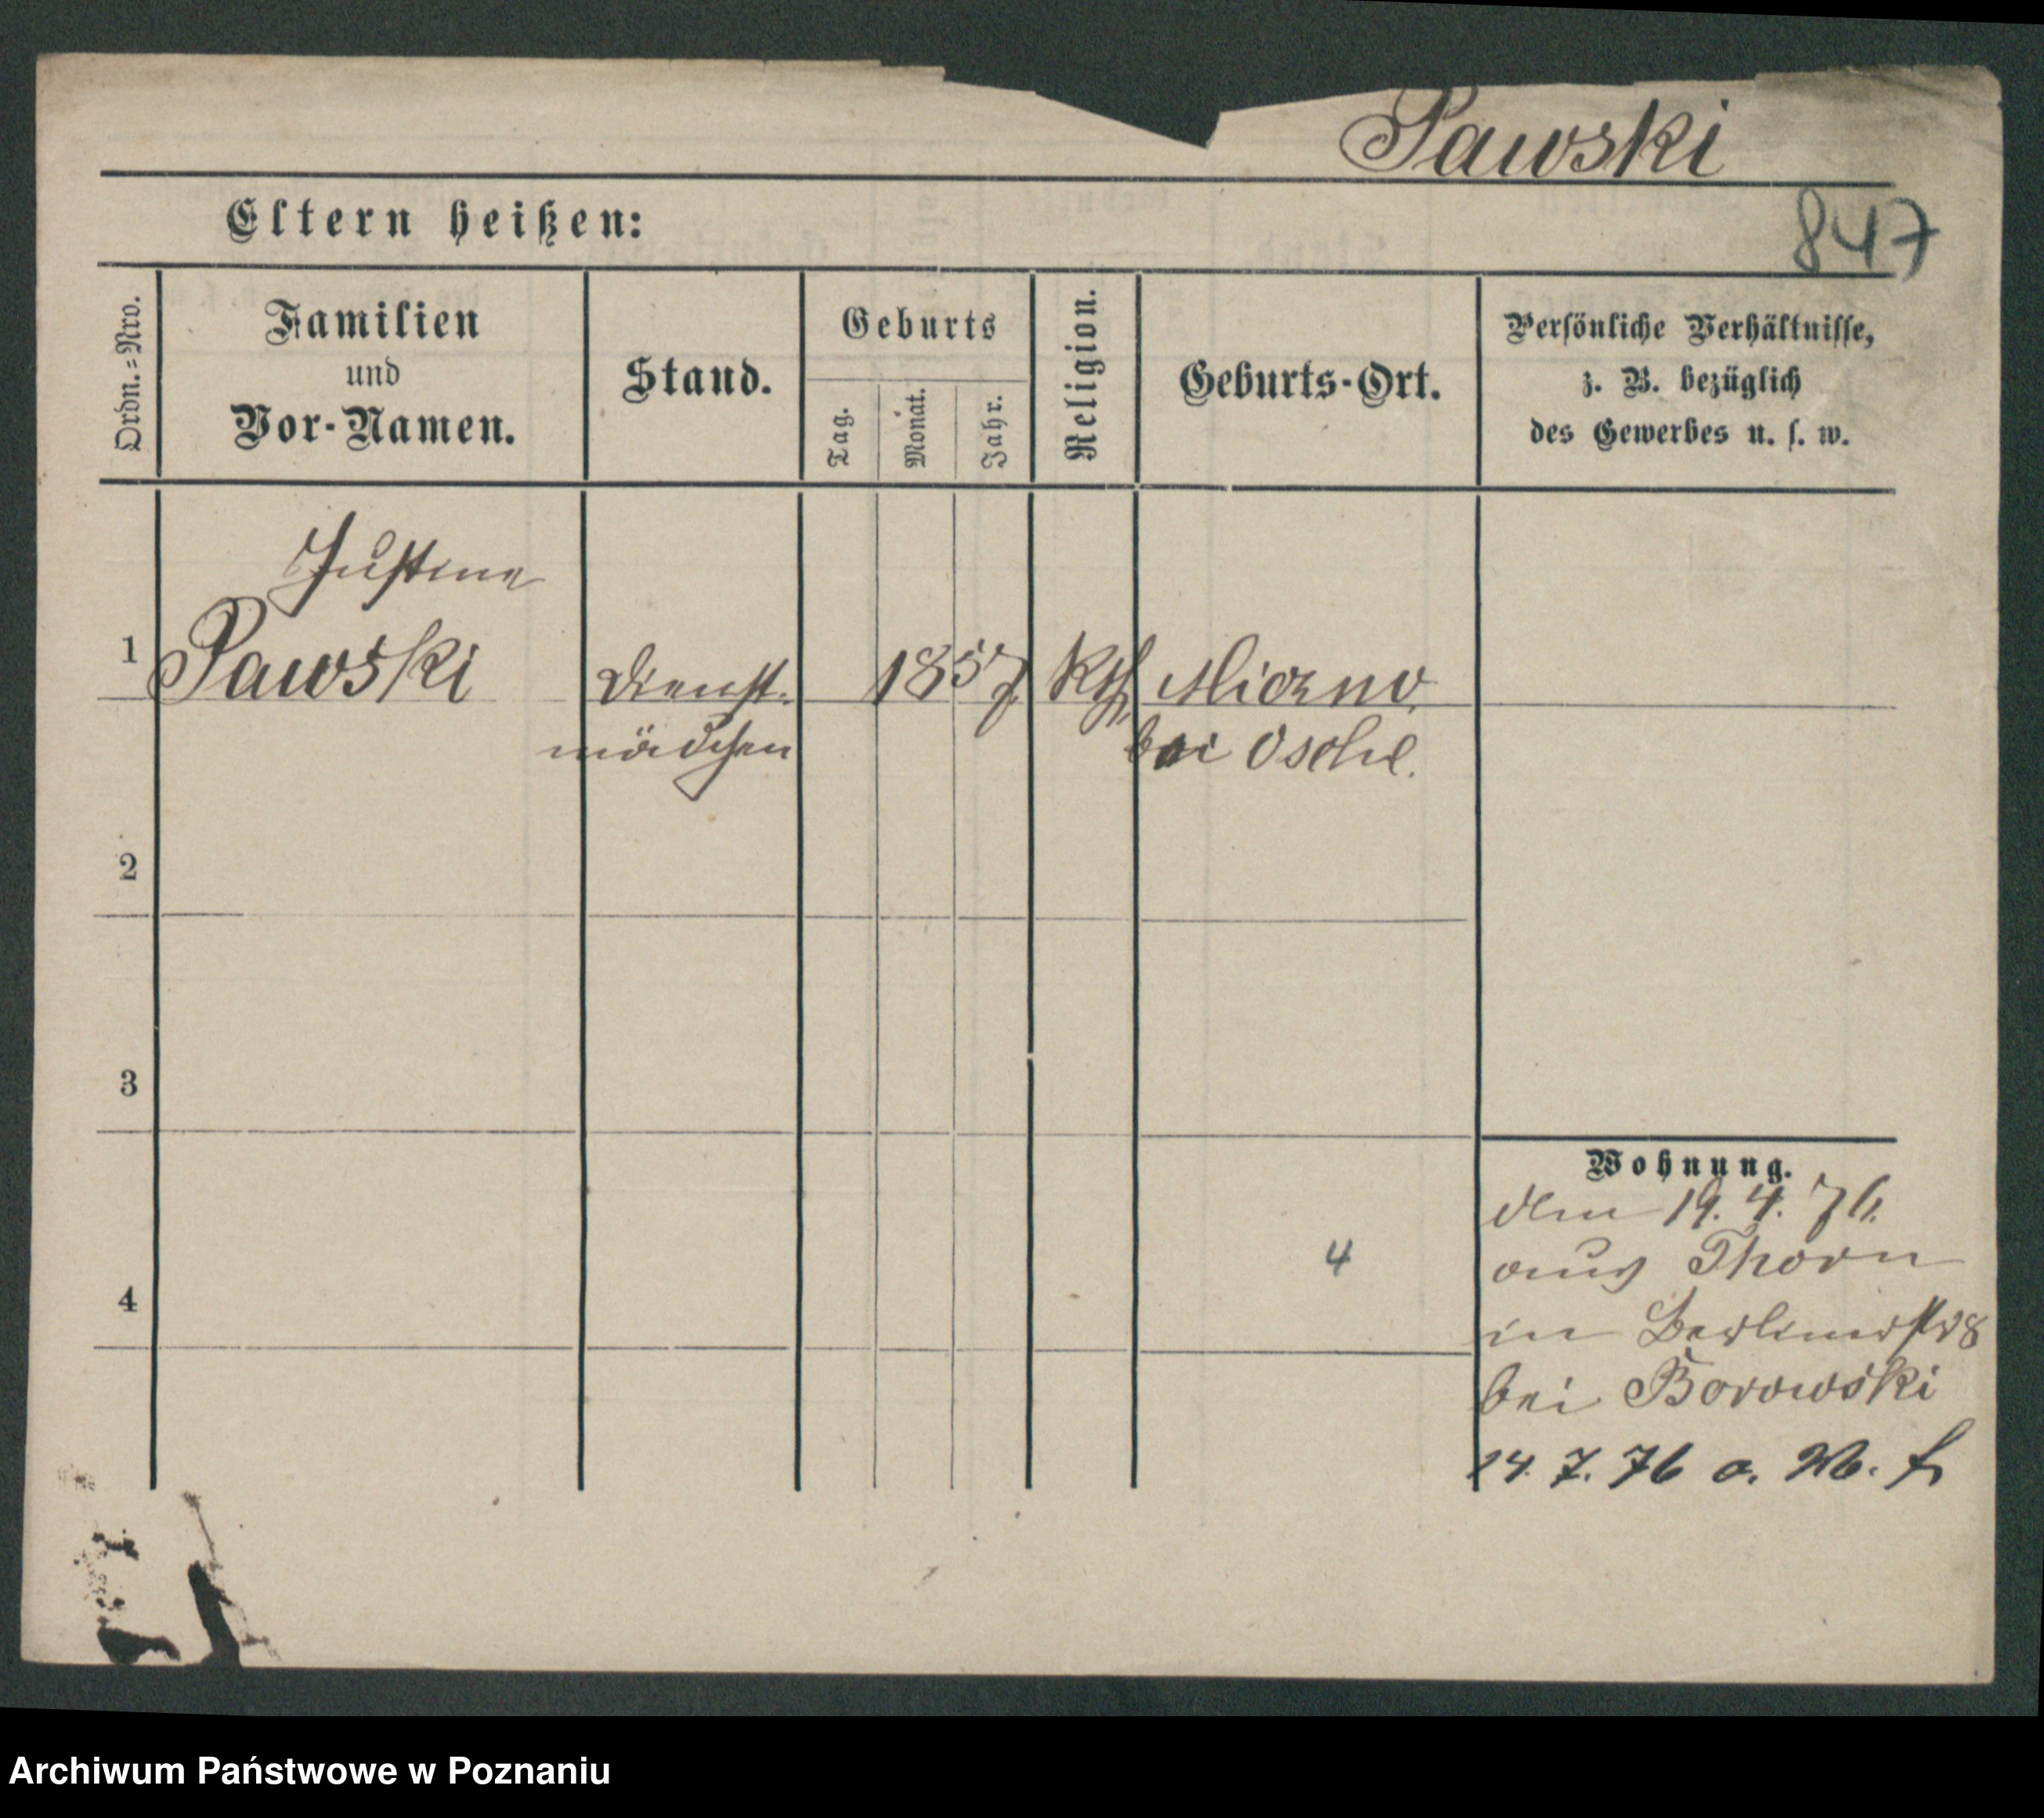 Pawski
847
Eltern heißen:
Ordn.-Nro.
Familien
und
Vor-Namen.
Stand.
Geburts
Tag.
Monat.
Jahr.
Religion.
Geburts-Ort.
Persönliche Verhältnisse,
z. B. bezüglich
des Gewerbes u. s. w.
Justine
1 Pawski Dienst- 1857 kth
mädchen bei
2
3
Wohnung.
den 19. 4. 76.
aus Thorn
4
4
in Berlinerstr 8
bei Borowski
14. 7. 76 o. W. f
Archiwum Państwowe w Poznaniu